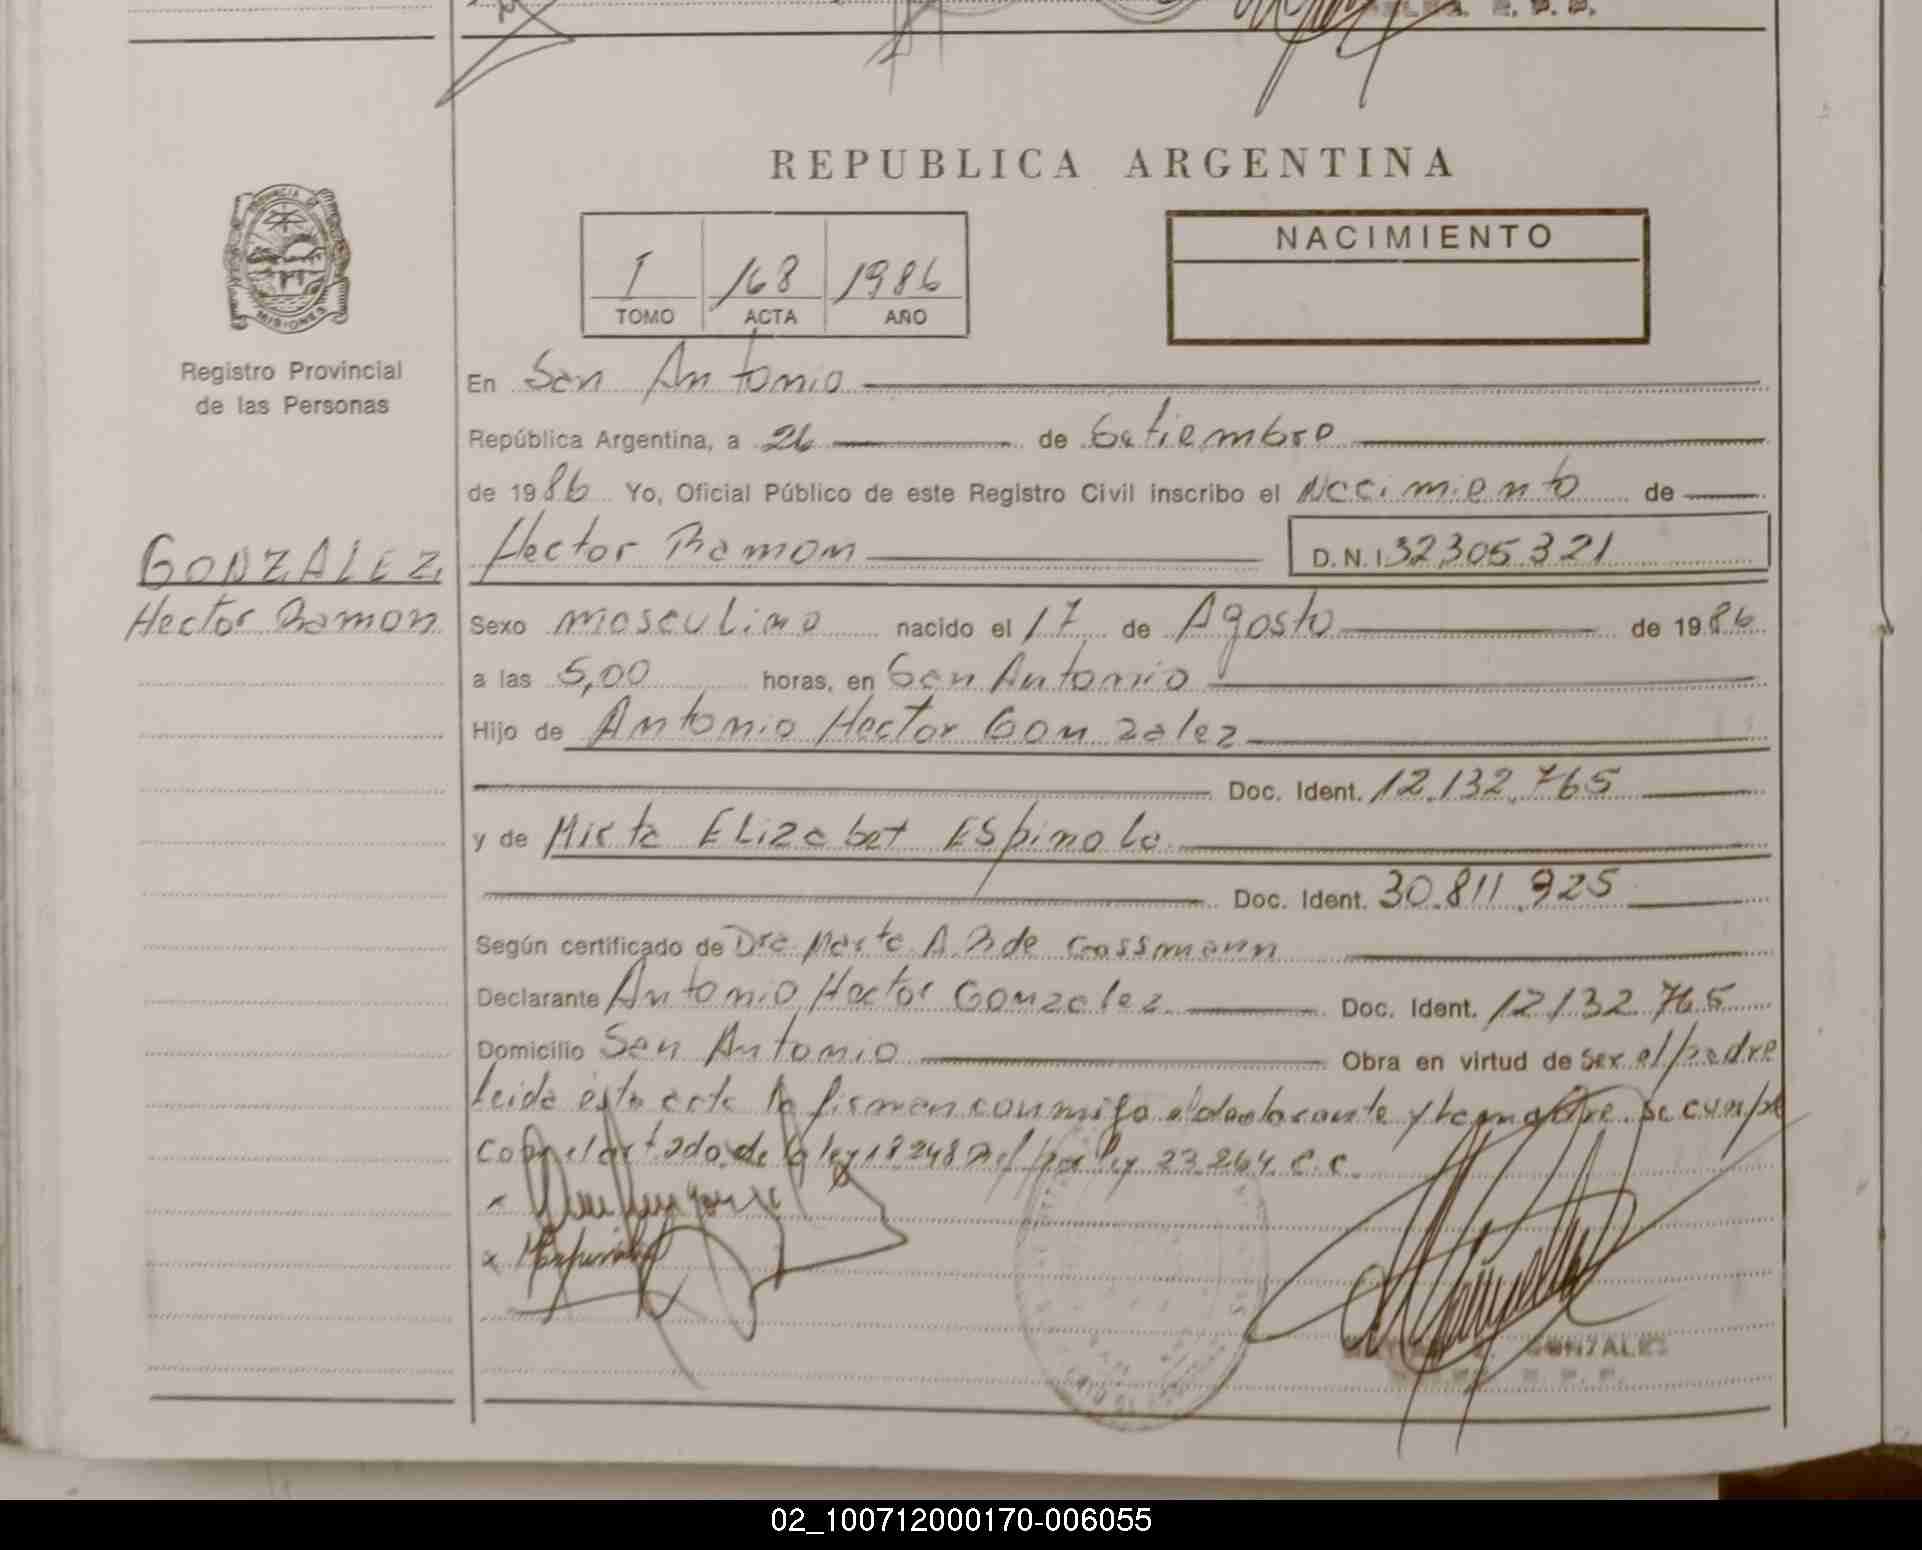 REPUBLICA ARGENTINA
PROVINCIA DE
MISIONES
Registro Provincial
de las Personas
I 168 1986
TOMO ACTA AÑO
NACIMIENTO
En San Antonio
República Argentina, a 26 de Setiembre
de 1986 Yo, Oficial Público de este Registro Civil inscribo el Nacimiento de
GONZALEZ
Hector Ramon
Hector Ramon D.N.I 32305.321
Sexo masculino nacido el 17 de Agosto de 1986
a las 5,00 horas, en San Antonio
Hijo de Antonio Hector Gonzalez
Doc. Ident. 12.132.765
y de Mirta Elizabet Espinola
Doc. Ident. 30.811.925
Según certificado de Dra Marta A. R de Gassmann
Declarante Antonio Hector Gonzalez Doc. Ident. 12132.765
Domicilio San Antonio Obra en virtud de ser el padre
leida esta acta la firman conmigo el declarante y la madre. Se cumple
con el de la ley 18.248 por ley 23.264 C.C.
GONZALES
02_100712000170-006055